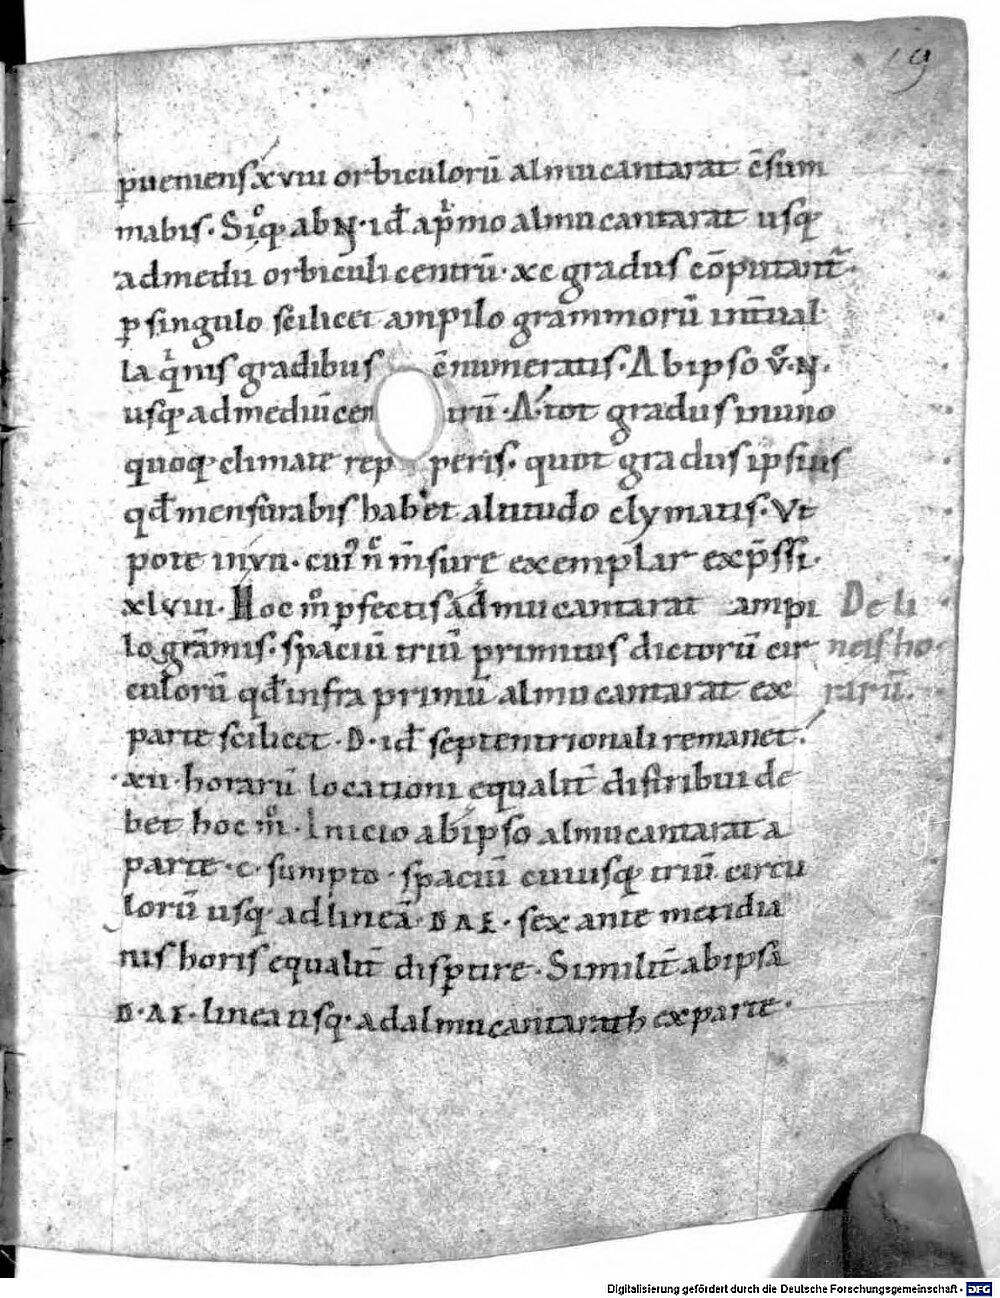 19
pueniens xviii orbiculorū almucantarat c̄sum
mabis. Siq̊ꝫ ab N. id̄ a p̍mo almucantarat usqꝫ
ad medii orbiculi centrū. xc gradus cōputant᷑.
ꝑ singulo scilicet ampilo grammorū int̄ual
la q̍nis gradibus c̄numeratis. Ab ipso v̊. N.
usqꝫ ad mediū cen trū. A. tot gradus in uno
quoqꝫ climate rep peris. quot gradus ipsius
qd̄ mensurabis habet altitudo clymatis. Vt
pote in .vii. cui᷒ n̊ m̄sure exemplar exp̄ssi.
xlviii. Hoc m̊ ꝑfectis admucantarat ampi
lo grāmis. spaciū triū primitus dictorū cir
culorū qd̄ infra primū almucantarat ex
parte scilicet. D. id̄ septentrionali remanet.
xii. horarū locationi equalit̄ distribui de
bet hoc m̊. Inicio ab ipso almucantarat a
parte. c. sumpto. spaciū cuiusqꝫ triū circu
lorū usqꝫ ad lineā. D A E. sex ante meridia
nis horis equalit̄ disꝑtire. Similit̄ ab ipsa
D. A E. linea usqꝫ. ad almucantarath ex parte.
De li
neis ho
rarū.
Digitalisierung gefördert durch die Deutsche Forschungsgemeinschaft - DFG